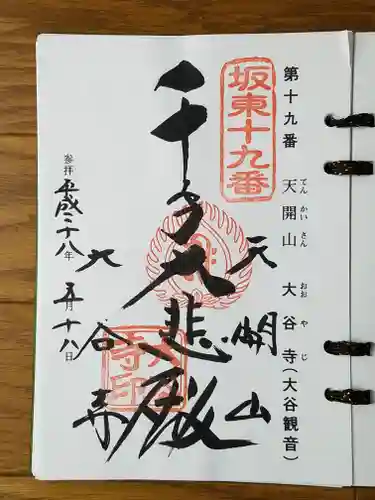 第十九番 天開山 大谷寺(大谷観音)
てんかいさん おおやじ
坂東十九番
天開山
千手大悲殿
大谷寺
寺印
参拝 平成二十八年 五月十八日